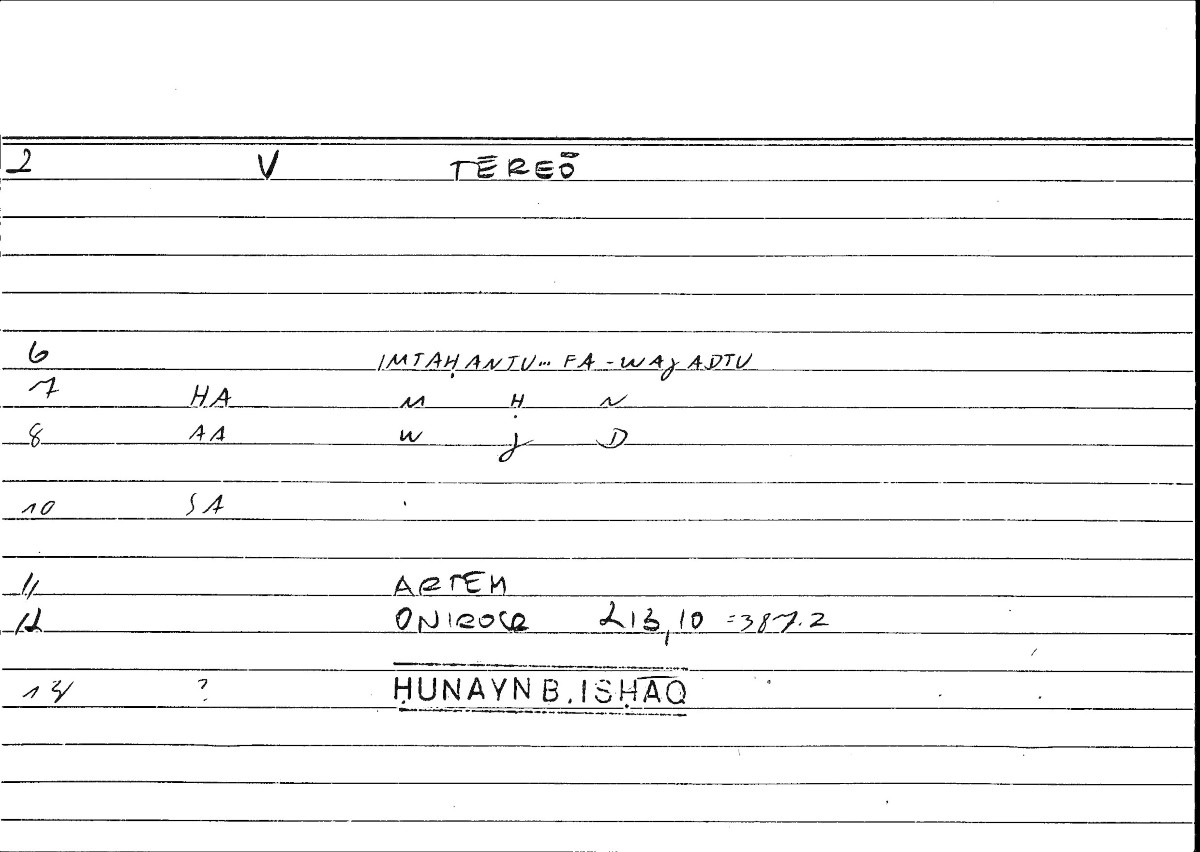 2 V TĒREŌ
6 IMTAḤANTU... FA-WAJADTU
7 HA M Ḥ N
8 AA W J D
10 SA
11 ARTEM
12 ONIROCR 213,10 =387.2
13 ? ḤUNAYN B. ISḤĀQ